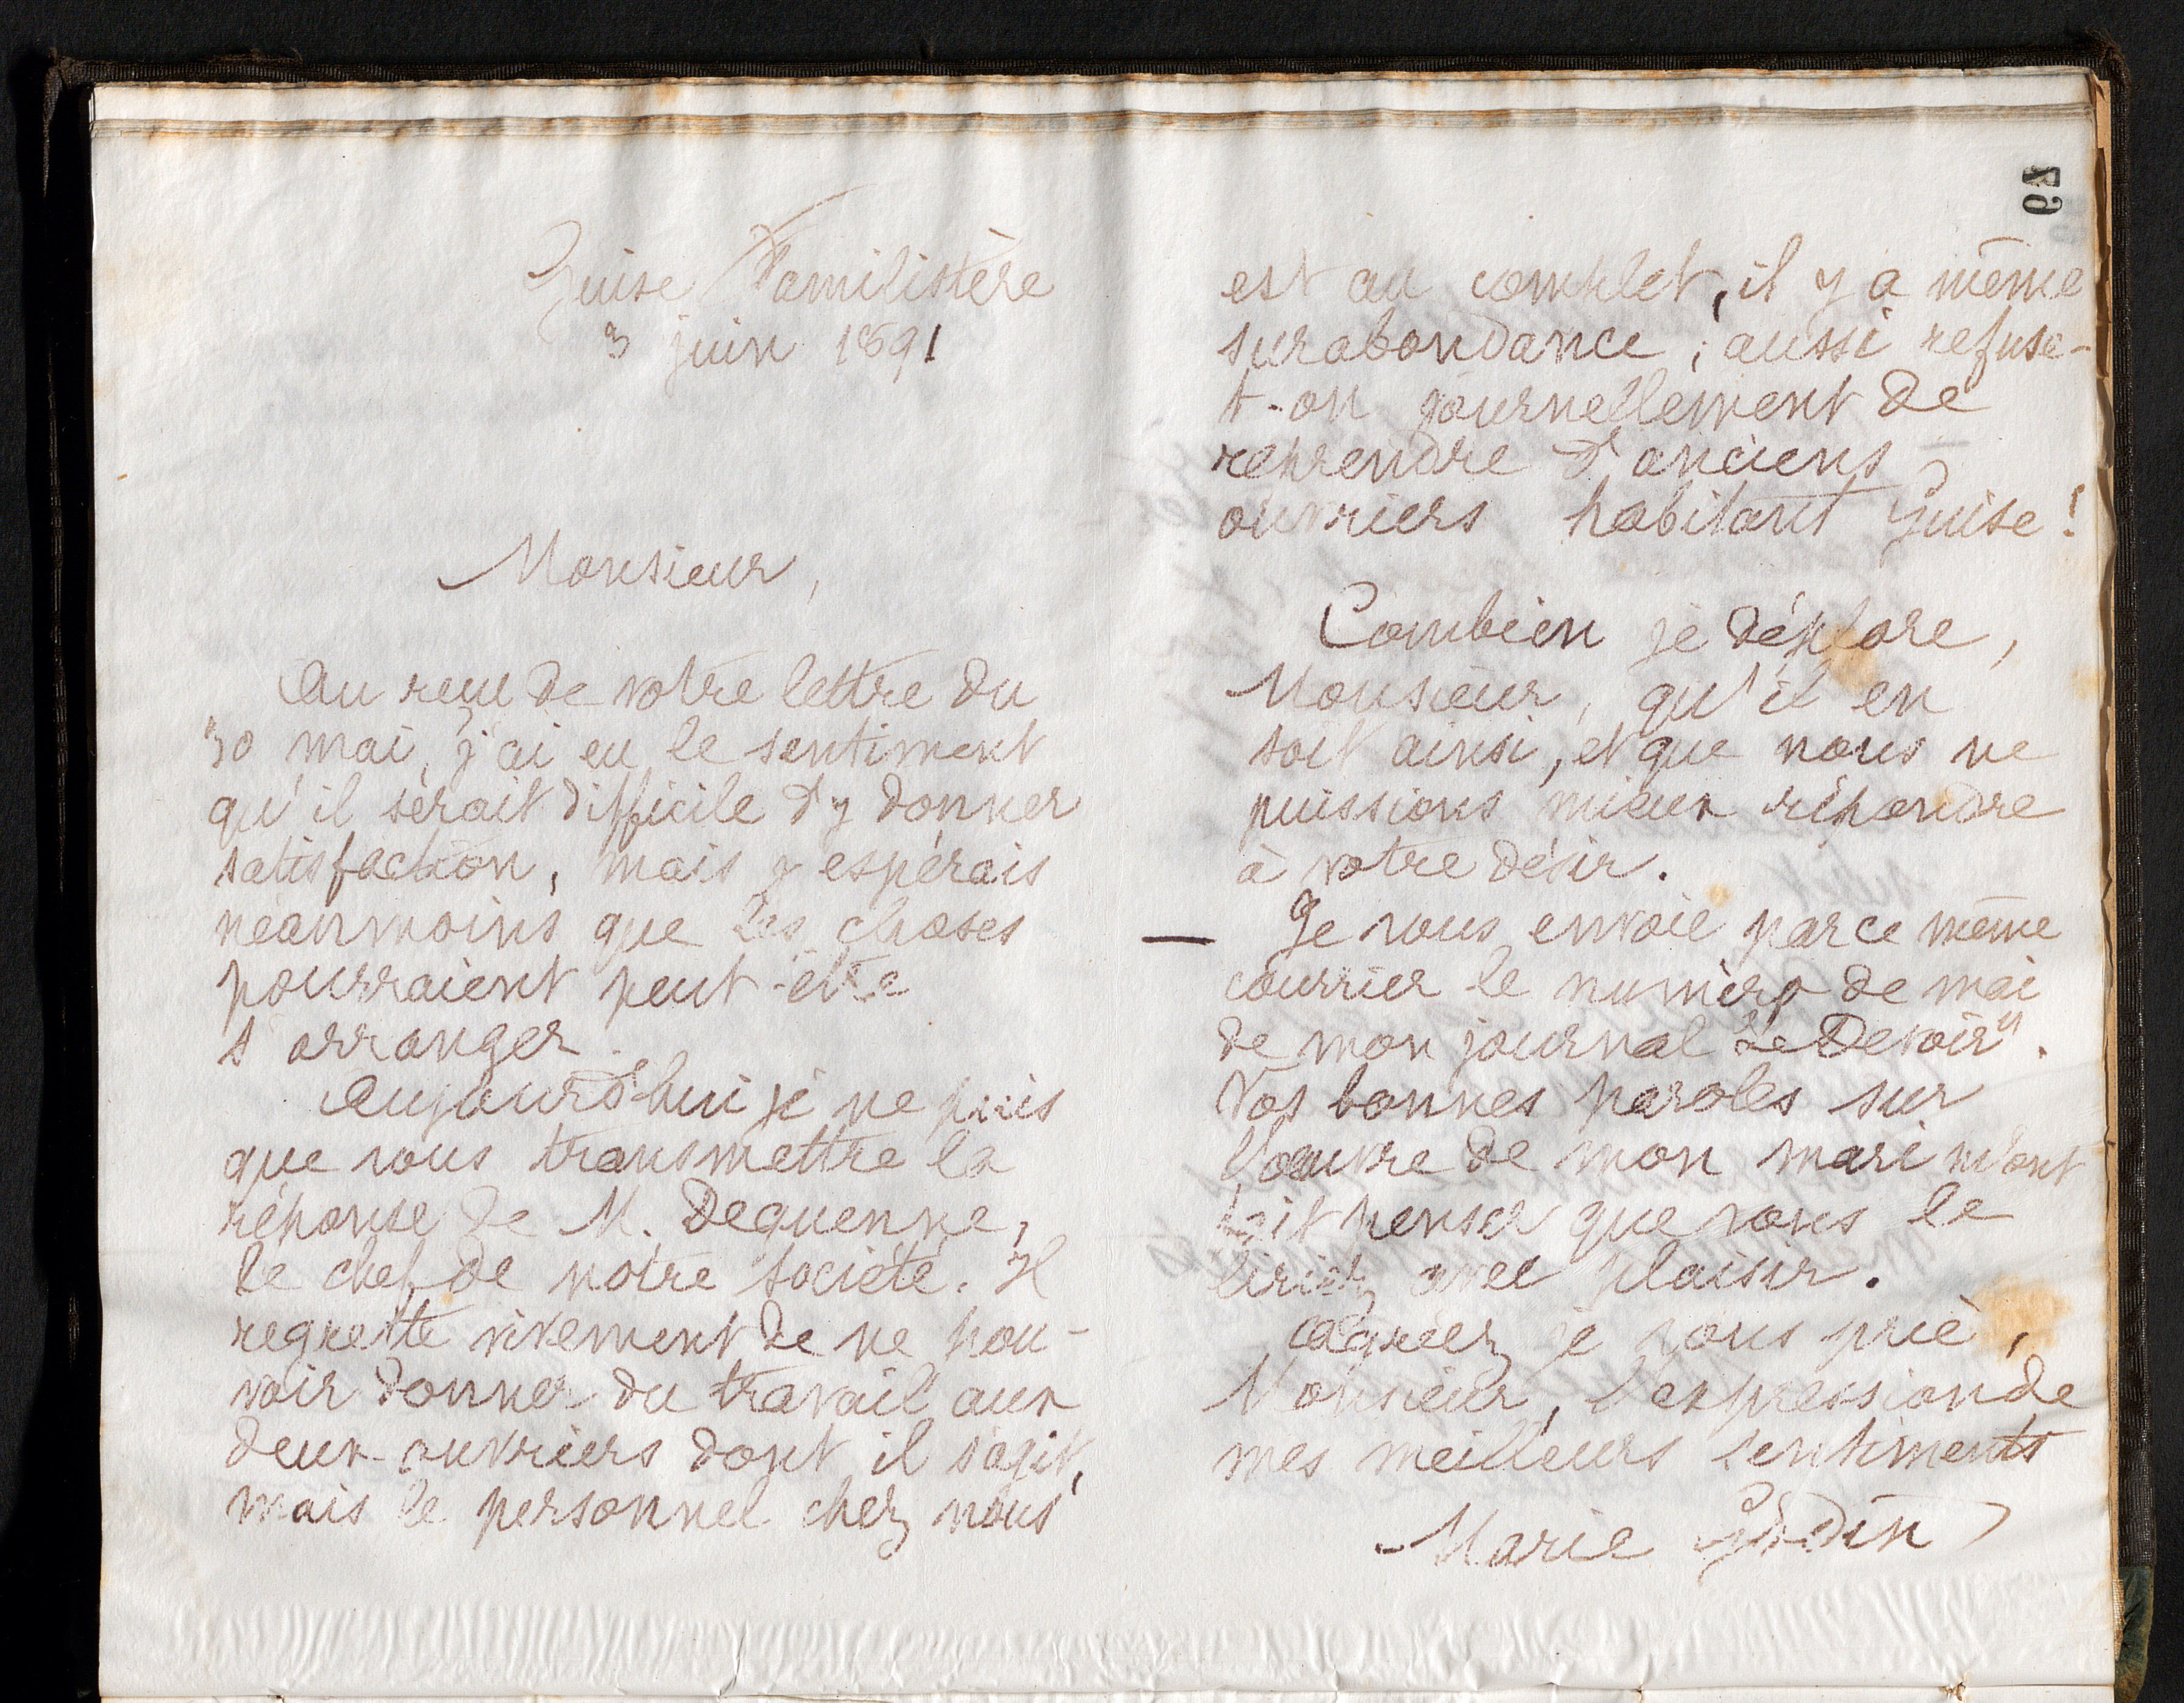 Guise Familistère
3 juin 1891
Monsieur,
Au reçu de votre lettre du
30 mai, j'ai eu le sentiment
qu'il serait difficile d'y donner
satisfaction, mais j'espérais
néanmoins que les choses
pourraient peut-être
s'arranger.
Aujourd'hui je ne puis
que vous transmettre la
réponse de M. Dequenne,
le chef de notre société. Il
regrette vivement de ne pou-
voir donner du travail aux
deux ouvriers dont il s'agit,
mais le personnel chez nous
79
est au complet, il y a même
surabondance ; aussi refuse-
t-on journellement de
reprendre d'anciens
ouvriers habitant Guise !
Combien je déplore,
Monsieur, qu'il en
soit ainsi, et que nous ne
puissions mieux répondre
à votre désir.
Je vous envoie par ce même
courrier le numéro de mai
de mon journal "Le Devoir".
Vos bonnes paroles sur
l'œuvre de mon mari m'ont
fait penser que vous le
liriez avec plaisir.
Agréez je vous prie,
Monsieur, l'expression de
mes meilleurs sentiments
Marie Godin